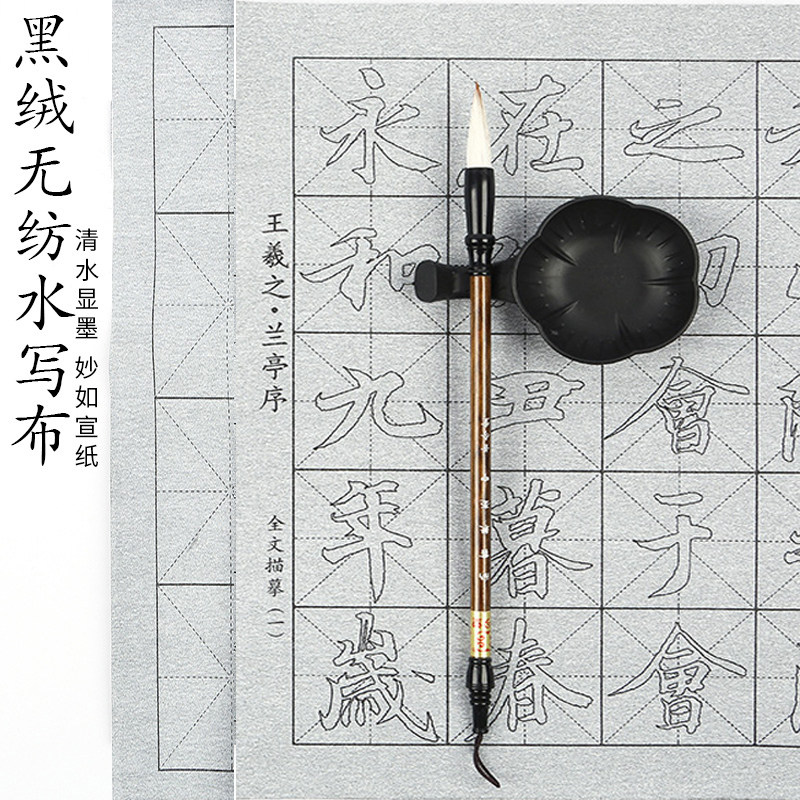 黑绒无纺水写布
清水显墨 妙如宣纸
王羲之·兰亭序
全文描摹(一)
永和九年歲
在 丑暮春
之 會于會